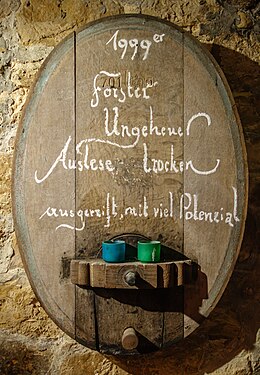 1999er
Forster
Ungeheuer
Auslese trocken
ausgereift, mit viel Potenzial